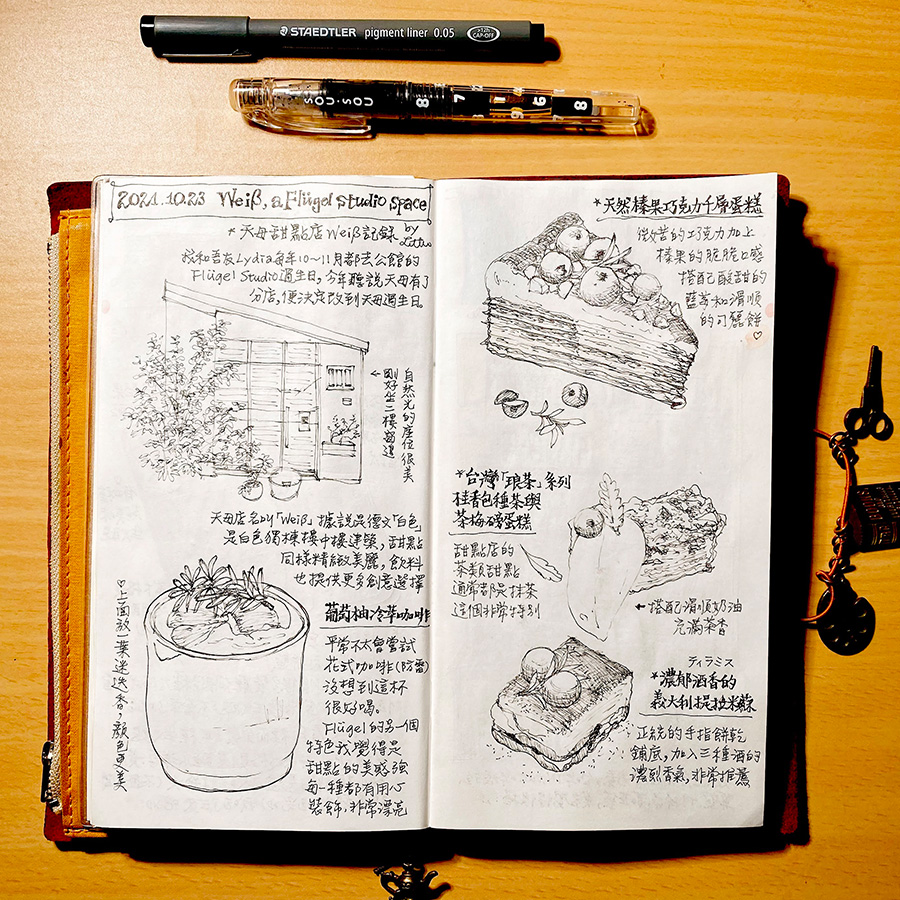 STAEDTLER pigment liner 0.05
>12h CAP-OFF
2021.10.23 Weiß, a Flügel studio space
*天母甜點店Weiß記錄 by
我和吾友Lydia每年10~11月都去公館的
Flügel Studio過生日,今年聽說天母有了
分店,便決定改到天母過生日。
自然光的座位很美
←剛好坐二樓窗邊
天母店名by「Weiß」據說是德文「白色」
是白色獨棟樓中樓建築,甜點
同樣精緻美麗,飲料
也提供更多創意選擇
♡上面放一葉迷迭香,顏色更美
葡萄柚冷萃咖啡
平常不太會嘗試
花式咖啡(防雷)
沒想到這杯
很好喝。
Flügel的另一個
特色我覺得是
甜點的美感強
每一種都有用心
裝飾,非常漂亮
*天然榛果巧克力千層蛋糕
微苦的巧克力加上
榛果的脆脆口感
搭配酸甜的
藍莓和滑順
的可麗餅
♡
*台灣「琅茶」系列
桂香包種茶與
茶梅磅蛋糕
甜點店的
茶類甜點
通常都是抹茶
這個非常特別
←搭配滑順奶油
充滿茶香
ティラミス
*濃郁酒香的
義大利提拉米蘇
正統的手指餅乾
鋪底,加入三種酒的
濃烈香氣,非常推薦